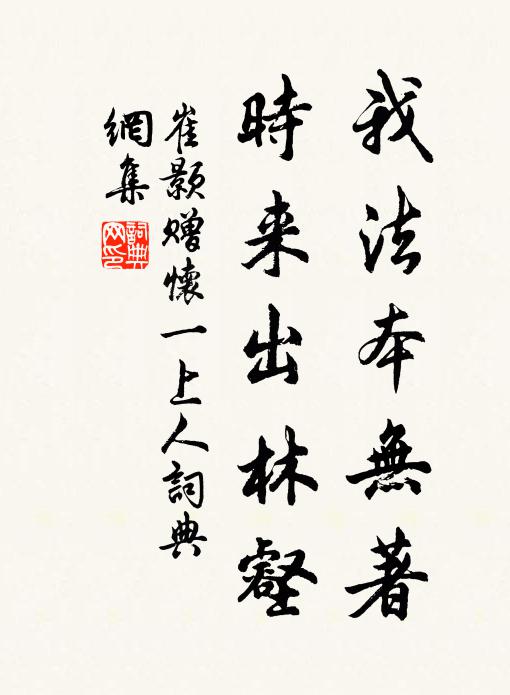 我法本無著
時来出林壑
崔颢赠懷一上人詞典
網集
詞典網印